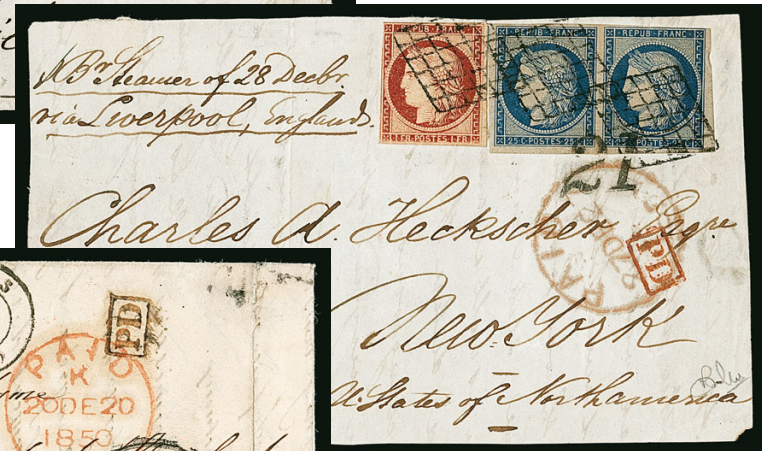 pr Steamer of 28 Decbr.
via Liverpool, England.
REPUB. FRANC.
1. FR. POSTES 1. FR.
REPUB. FRANC.
25 C. POSTES. 25 C.
REPUB. FRANC.
25 C. POSTES. 25 C.
21
Charles A. Heckscher Esqre
PAID
27 DE
PD
New-York
U. States of Northamerica
S
PD
PAID
K
20 DE 20
1850